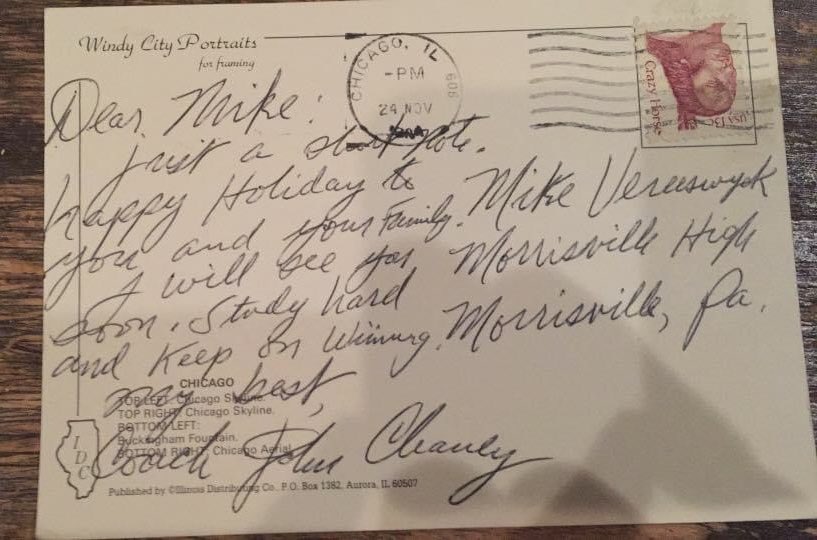 Windy City Portraits
for framing
CHICAGO, IL 606
-PM
24 NOV
Crazy Horse
USA 13c
Dear Mike:
Just a short Note.
happy Holiday to
you and your Family.
I will see you
soon. Study hard
and Keep on Winning.
my best,
Coach John Chaney
Mike Vreeswyk
Morrisville High
Morrisville, Pa.
CHICAGO
TOP LEFT: Chicago Skyline.
TOP RIGHT: Chicago Skyline.
BOTTOM LEFT:
Buckingham Fountain.
BOTTOM RIGHT: Chicago Aerial
IDC
Published by ©Illinois Distributing Co., P.O. Box 1382, Aurora, IL 60507